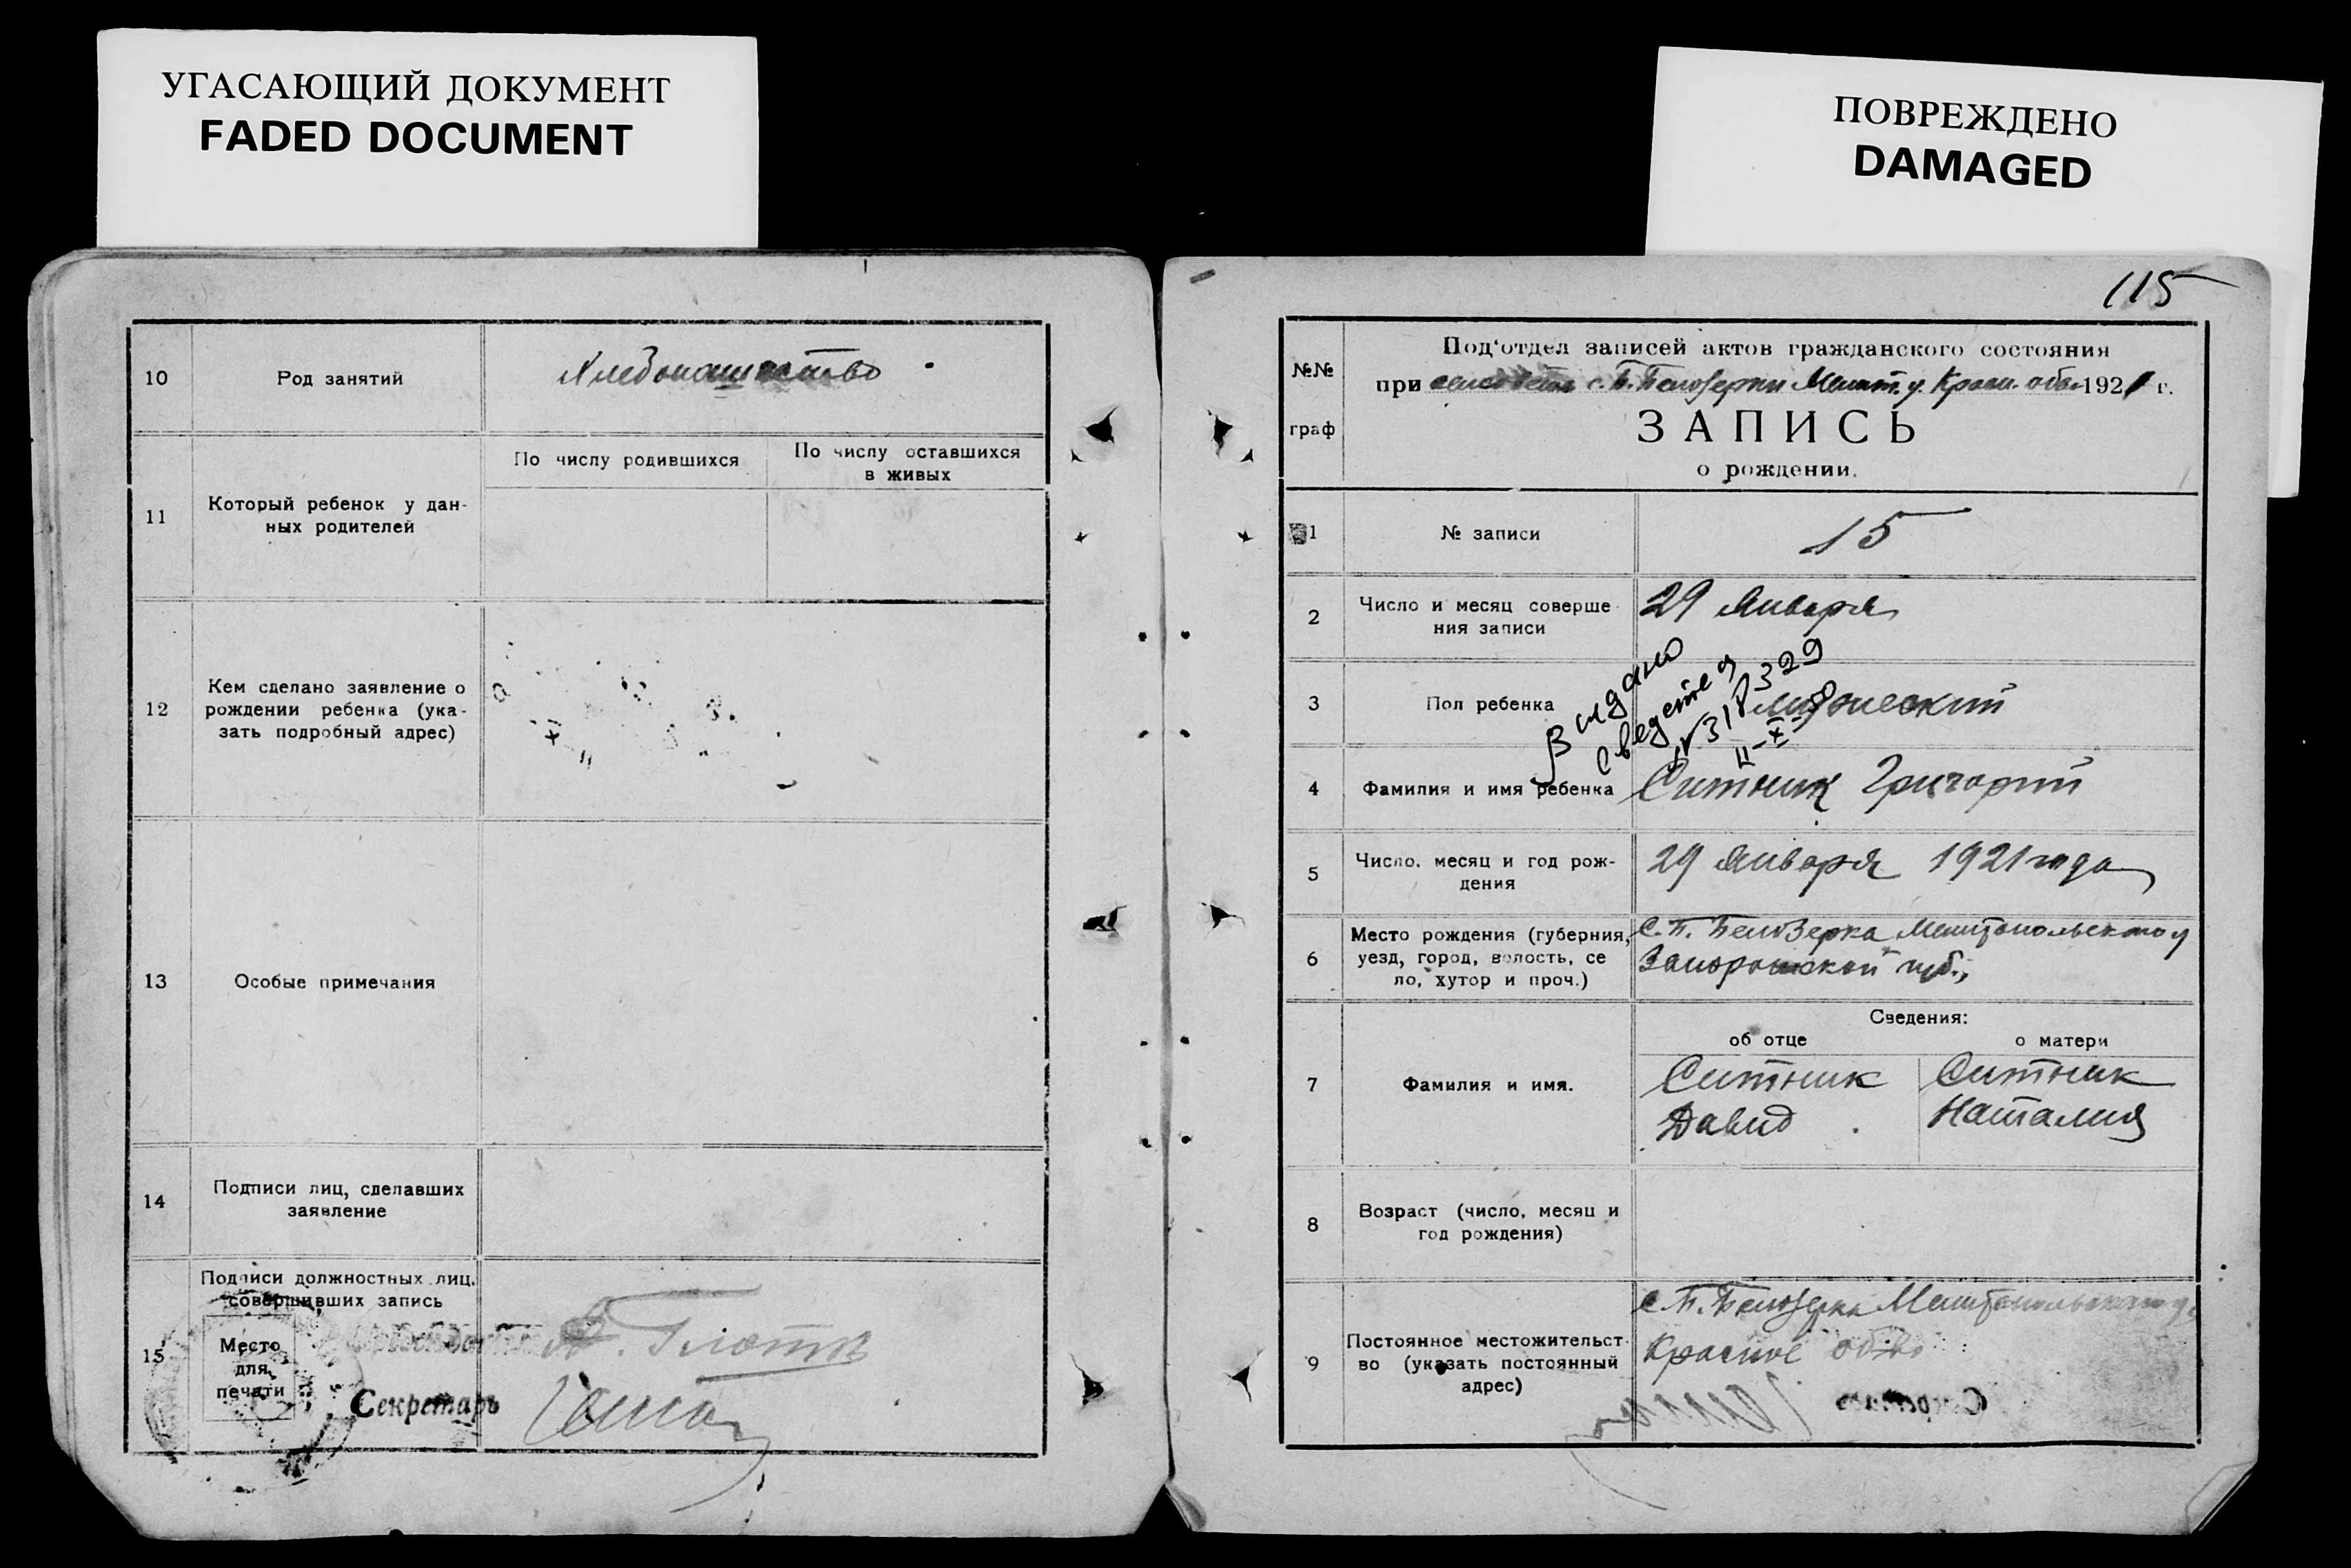 УГАСАЮЩИЙ ДОКУМЕНТ
FADED DOCUMENT
ПОВРЕЖДЕНО
DAMAGED
10
Род занятий
Хлебопашество
11
Который ребенок у дан-
ных родителей
По числу родившихся
По числу оставшихся
в живых
12
Кем сделано заявление о
рождении ребенка (ука-
зать подробный адрес)
13
Особые примечания
14
Подписи лиц, сделавших
заявление
15
Подписи должностных лиц,
совершивших запись
Место
для
печати
Секретарь
115
№№
граф
Под'отдел записей актов гражданского состояния
при с. Б. Белозерки Мелит. у. 1921 г.
ЗАПИСЬ
о рождении.
1
№ записи
15
2
Число и месяц соверше
ния записи
29 Января
3
Пол ребенка
мужеский
Видано
4
Фамилия и имя ребенка
Ситник Григорий
5
Число, месяц и год рож-
дения
29 Января 1921 года
6
Место рождения (губерния,
уезд, город, волость, се
ло, хутор и проч.)
С. Б. Белозерка Мелитопольского у
Запорожской губ.,
7
Фамилия и имя.
Сведения:
об отце
о матери
Ситник
Давид
Ситник
Наталия
8
Возраст (число, месяц и
год рождения)
9
Постоянное местожительст
во (указать постоянный
адрес)
с Б. Белозерка Мелитопольского у